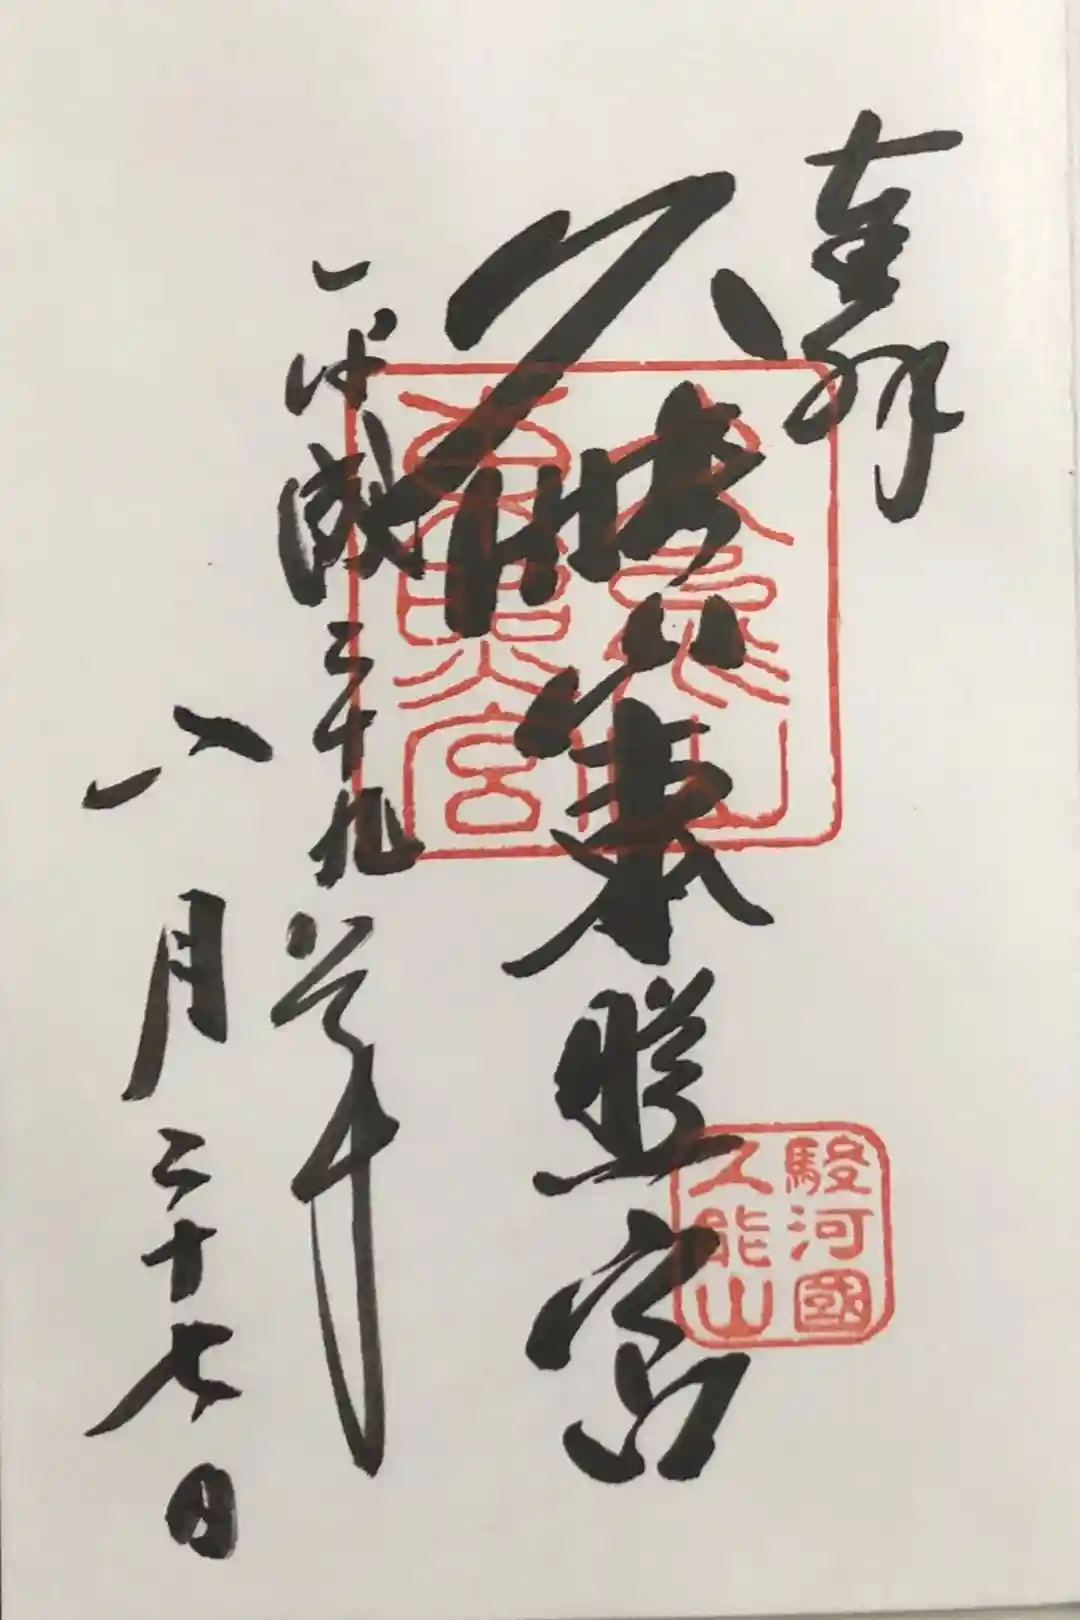 奉拝
久能山東照宮
平成二十九年
八月二十七日
久能山
東照宮
駿河國
久能山